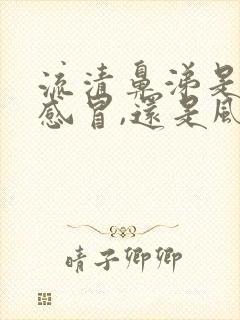 流清鼻涕是
感冒,還是風
晴子卿卿